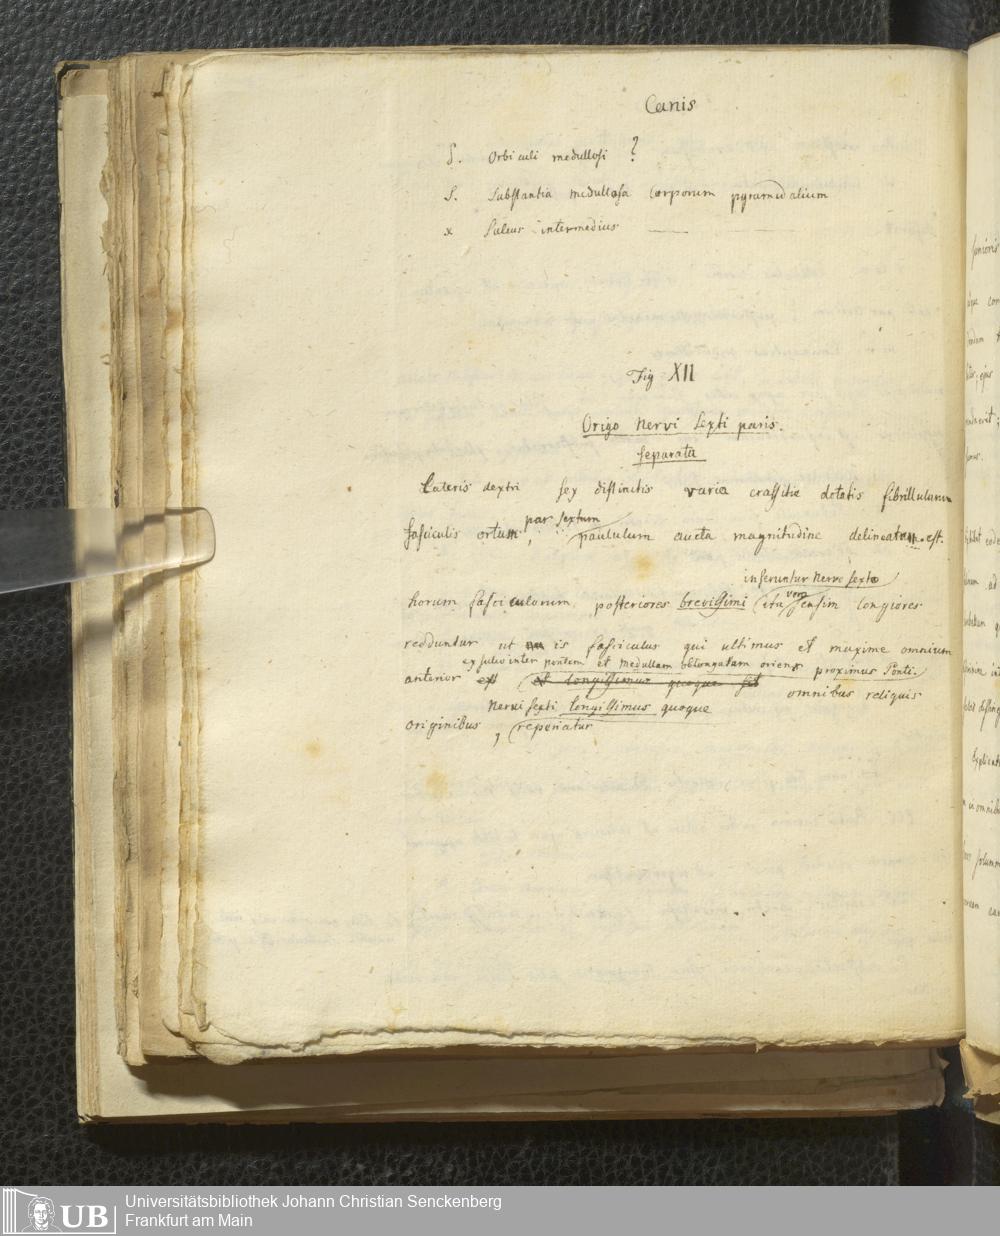 Canis
ξ. Orbiculi medullosi ?
S. Substantia medullosa corporum pyramidalium
x Sulcus intermedius — — —
Fig XII
Origo Nervi Sexti paris.
separata
Lateris dextri sex distinctis varia crassitie dotatis fibrillularum
par sextum
fasciculis ortum, paululum aucta magnitudine delineatum est.
inseruntur Nervo sexto
horum fasciculorum posteriores brevissimi ita vero sensim longiores
redduntur ut is fasciculus qui ultimus et maxime omnium
ex sulco inter pontem et medullam oblongatam oriens proximus Ponti.
anterior est et longissimus quoque sit omnibus reliquis
Nervi sexti longissimus quoque
originibus, reperiatur
Universitätsbibliothek Johann Christian Senckenberg
Frankfurt am Main
UB